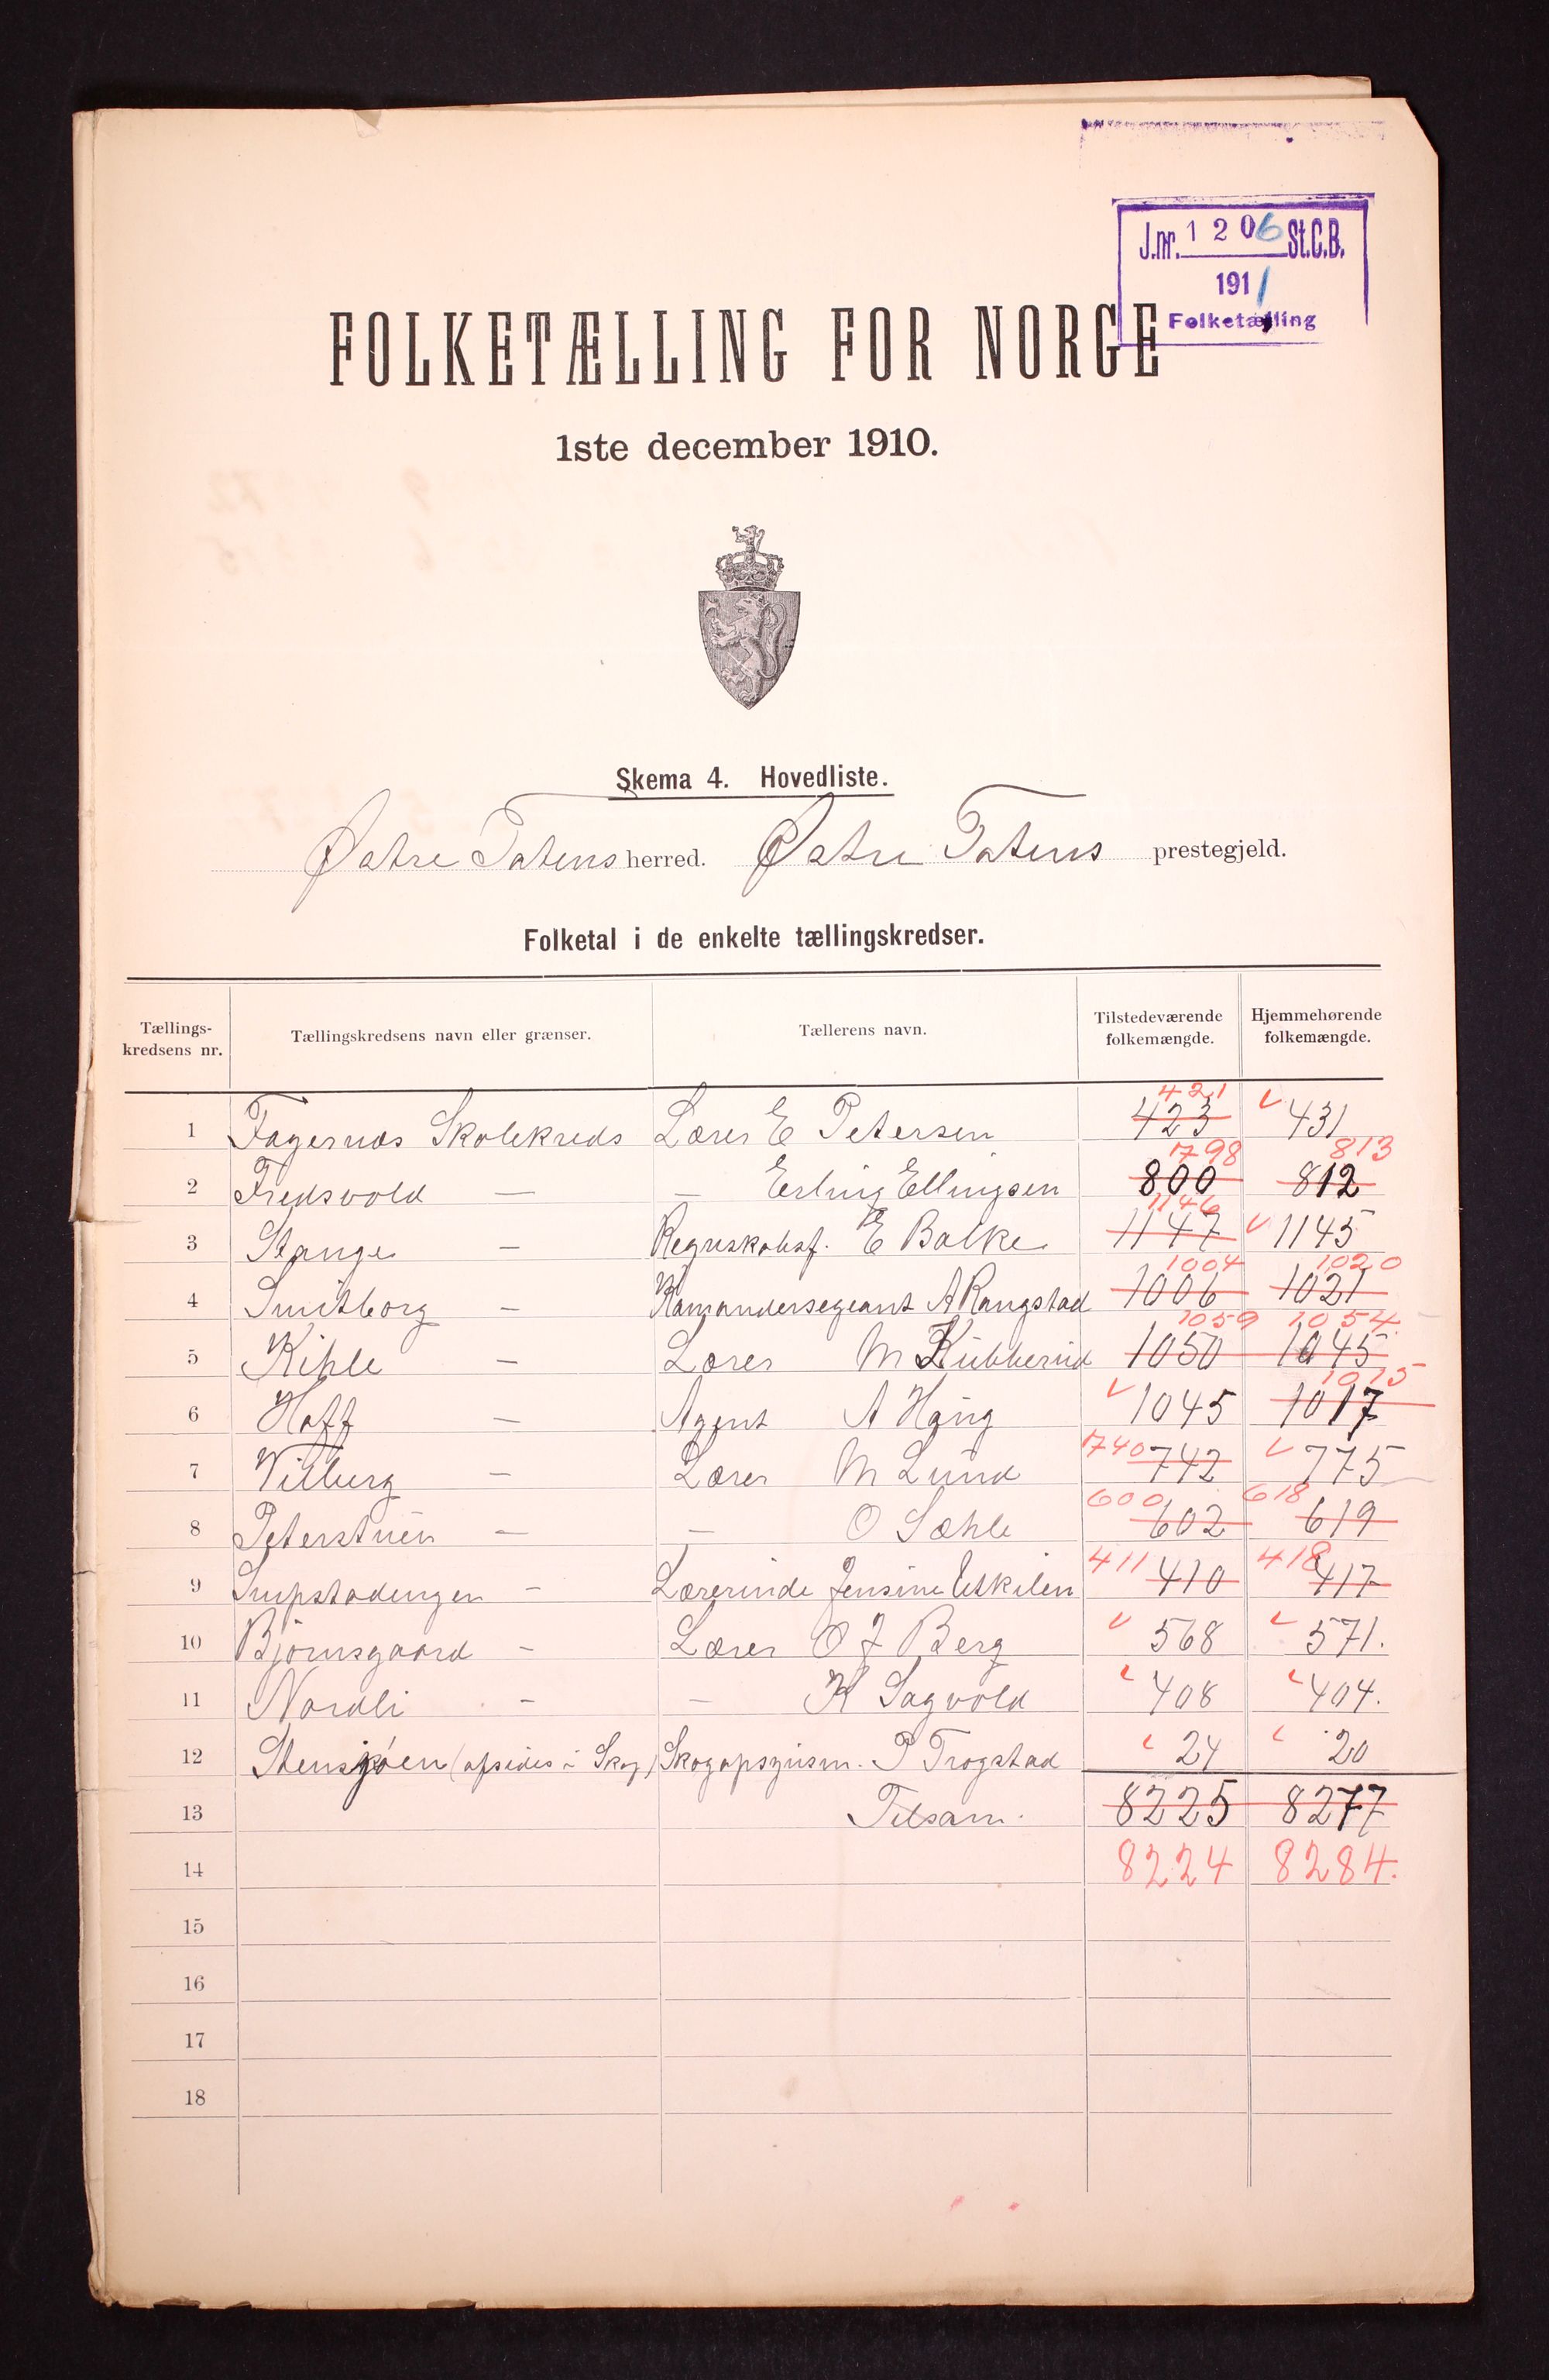 J.nr. 1206 St.C.B.
1911
Folketælling
FOLKETÆLLING FOR NORGE
1ste december 1910.
Skema 4. Hovedliste.
Østre Totens herred. Østre Totens prestegjeld.
Folketal i de enkelte tællingskredser.
Tællings-kredsens nr. Tællingskredsens navn eller grænser. Tællerens navn. Tilstedeværende folkemængde. Hjemmehørende folkemængde.
421
1 Fagernæs Skolekreds Lærer E Petersen 423 431
798 813
2 Fredsvold — — Erling Ellingsen 800 812
1146
3 Stange — Regnskabsf. E Balke 1147 1145
1004 1020
4 Smidborg — A Rangstad 1006 1021
1059 1054
5 Kihle — Lærer M Kubberud 1050 1045
1015
6 Hoff — Agent A Haug 1045 1017
740
7 Vilberg — Lærer M Lund 742 775
600 618
8 Peterstuen — — O Sæhle 602 619
411 418
9 — Lærerinde Jensine Eskilen 410 417
10 Bjørnsgaard — Lærer O J Berg 568 571.
11 Nordli — — K Sagvold 408 404.
12 Stensjøen (afsides i Skog) Skogopsynsm. P Trogstad 24 20
13 Tilsam. 8225 8277
14 8224 8284.
15
16
17
18